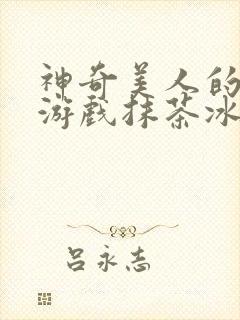 神奇美人的
游戏抹茶冰
吕永志